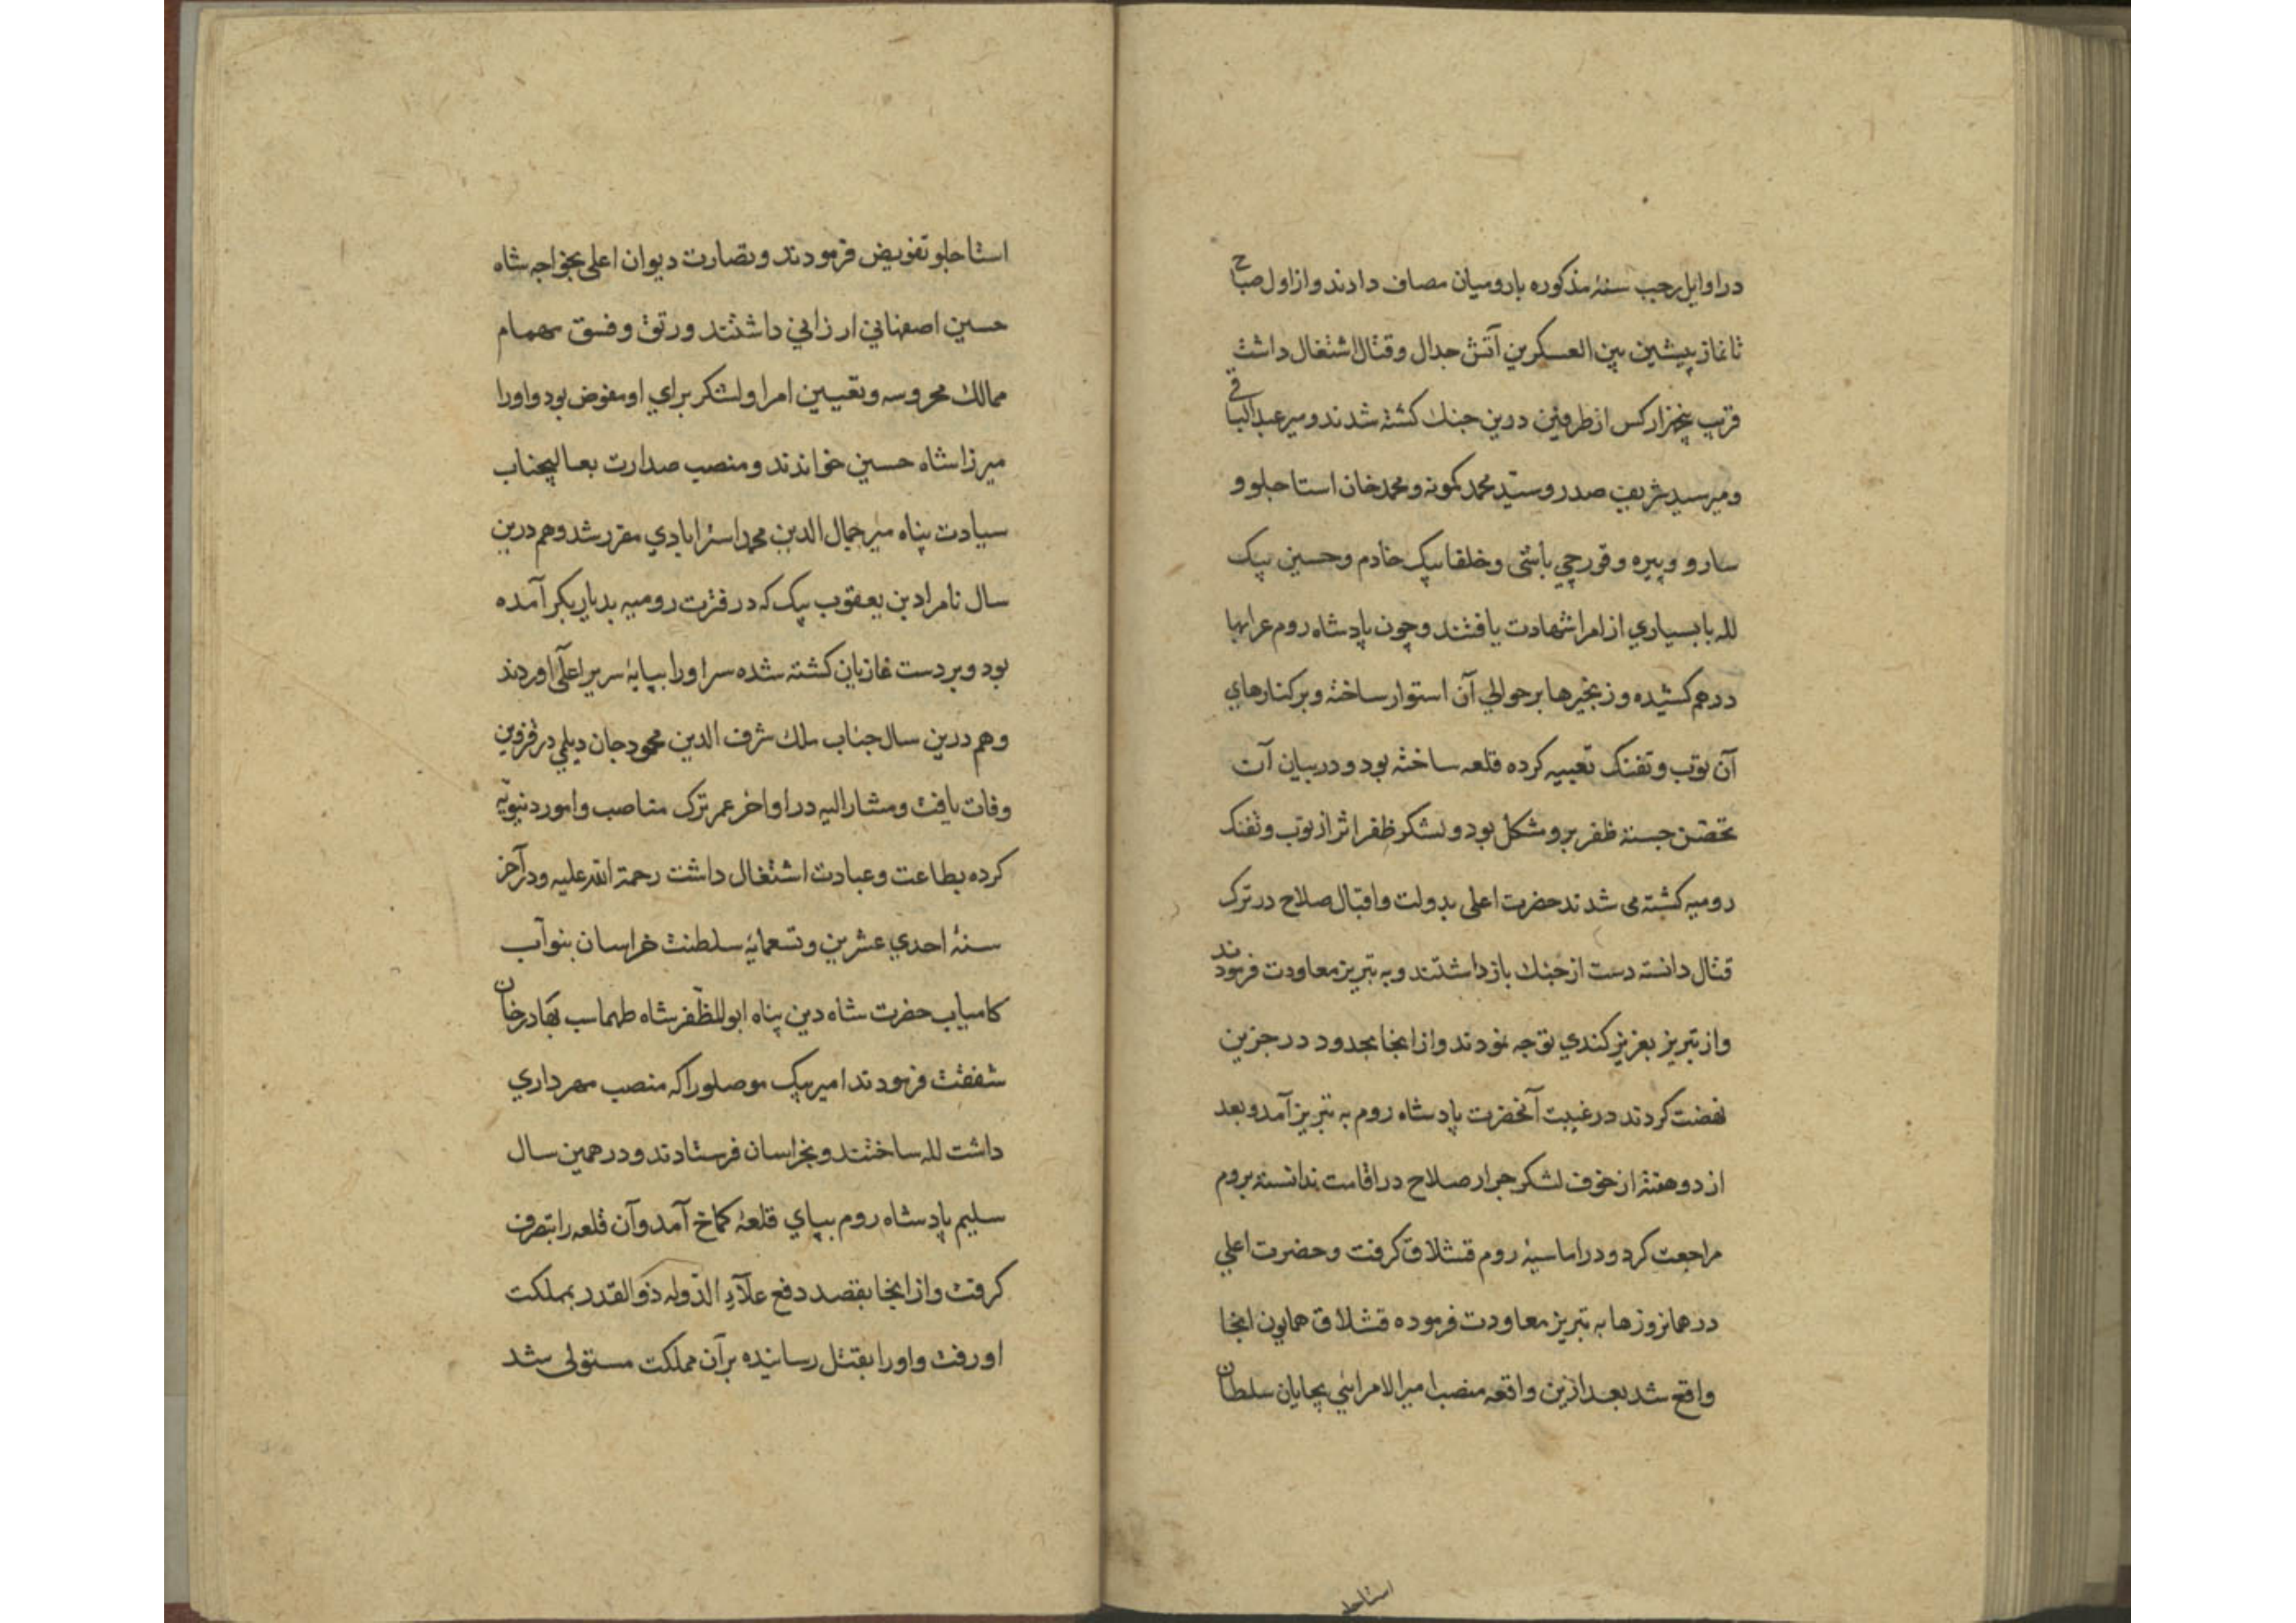 در اوایل رجب سنهٔ مذکوره با رومیان مصاف دادند و از اول صباح
تا نماز پیشین بین العسکرین آتش جدال و قتال اشتغال داشت
قریب پنجهزار کس از طرفین درین جنک کشته شدند و میر عبدالباقی
و میر سید شریف صدر و سیّد محمد کمونه و محمد خان استاجلو و
سارو و پیره و قورچی باشی و خلفا بیک خادم و حسین بیک
لله با بسیاری از امرا شهادت یافتند و چون پادشاه روم عرابها
در هم کشیده و زنجیرها بر حوالی آن استوار ساخته و بر کنارهای
آن توپ و تفنک تعبیه کرده قلعه ساخته بود و در میان آن
تحصّن جسته ظفر برو مشکل بود و لشکر ظفر اثر از توپ و تفنک
رومیه کشته می شدند حضرت اعلی بدولت و اقبال صلاح در ترک
قتال دانسته دست از جنک باز داشتند و به تبریز معاودت فرمودند
و از تبریز بعزیز کندی توجه نمودند و از انجا بحدود درجزین
نهضت کردند در غیبت آنحضرت پادشاه روم به تبریز آمد و بعد
از دو هفته از خوف لشکر جرار صلاح در اقامت ندانسته بروم
مراجعت کرد و در اماسیهٔ روم قشلاق کرفت و حضرت اعلی
در همانروزها به تبریز معاودت فرموده قشلاق همایون انجا
واقع شد بعد ازین واقعه منصب امیر الامرایی بچایان سلطان
استاجلو
استاجلو تفویض فرمودند و نصارت دیوان اعلی بخواجه شاه
حسین اصفهانی ارزانی داشتند و رتق و فسق مهمام
ممالک محروسه و تعیین امرا و لشکر برای او مفوض بود و او را
میرزا شاه حسین خواندند و منصب صدارت بعالیجناب
سیادت پناه میر جمال الدین محمد استرابادی مقرر شد و هم درین
سال نامراد بن یعقوب بیک که در فترت رومیه بدیاربکر آمده
بود و بر دست غازیان کشته شده سر او را بپایهٔ سریر اعلی اوردند
و هم درین سال جناب ملک شرف الدین محمود جان دیلمی در قزوین
وفات یافت و مشار الیه در اواخر عمر ترک مناصب و امور دنیویّه
کرده بطاعت و عبادت اشتغال داشت رحمة الله علیه و در آخر
سنهٔ احدی عشرین و تسعمایهٔ سلطنت خراسان بنوآب
کامیاب حضرت شاه دین پناه ابو المظّفر شاه طهماسب بهادر خان
شفقت فرمودند امیر بیک موصلو را که منصب مهرداری
داشت لله ساختند و بخراسان فرستادند و در همین سال
سلیم پادشاه روم بپای قلعهٔ کماخ آمد و آن قلعه را بتصرف
کرفت و از انجا بقصد دفع علآء الدّوله ذو القدر بمملکت
او رفت و او را بقتل رسانیده بر آن مملکت مستولی شد